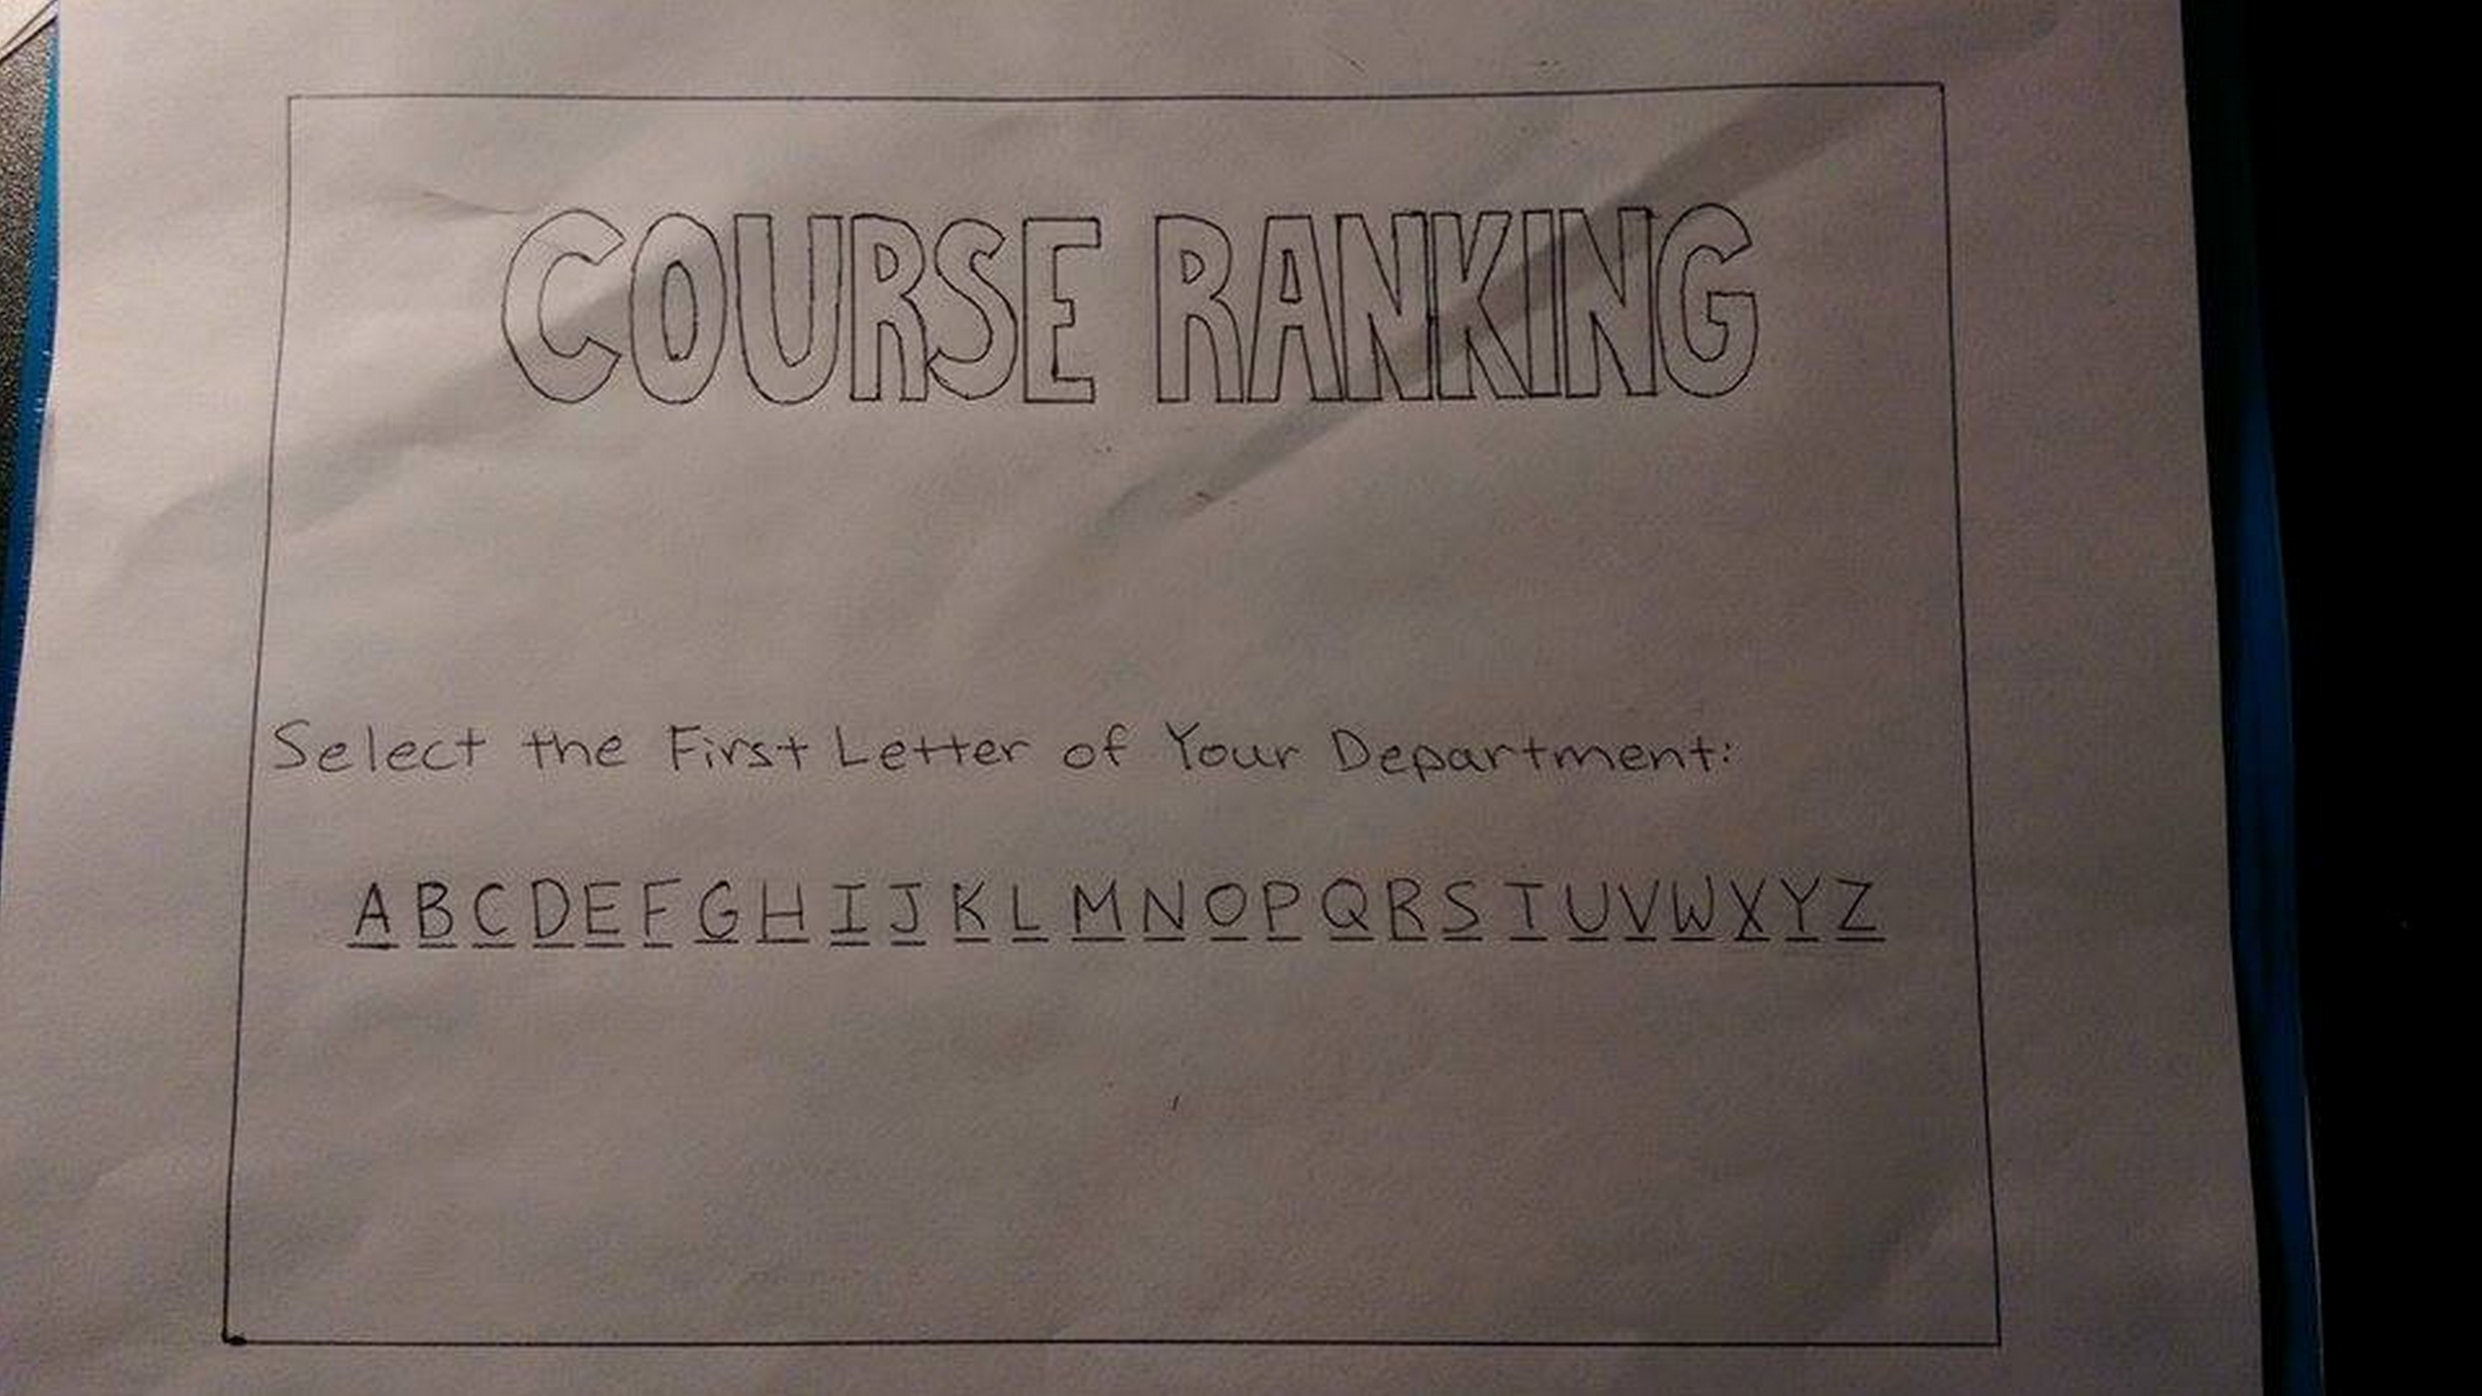 COURSE RANKING
Select the First Letter of Your Department:
A B C D E F G H I J K L M N O P Q R S T U V W X Y Z